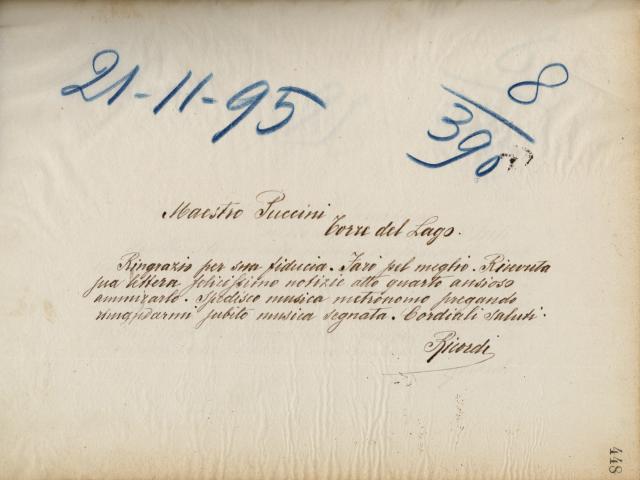 21-11-95
8
390
Maestro Puccini
Torre del Lago.
Ringrazio per sua fiducia. Farò pel meglio. Ricevuta
sua lettera felicissimo notizie atto quarto ansioso
ammirarlo. Spedisco musica metronomo pregando
rimandarmi subito musica segnata. Cordiali saluti.
Ricordi
448